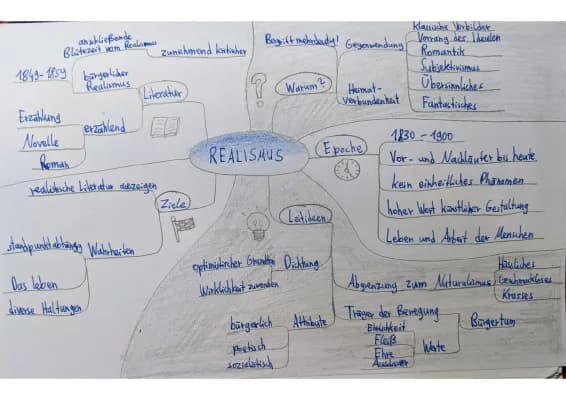 anschließende
Blütezeit vom Realismus
zunehmend kritischer
1849-1859
bürgerlicher
Realismus
Literatur
Erzählung
Novelle
Roman
erzählend
Begriff mehrdeutig!
Warum?
?
Gegenwendung
Klassische Vorbilder
Vorrang des Idealen
Romantik
Subjektivismus
Übersinnliches
Fantastisches
Heimat-
verbundenheit
REALISMUS
Epoche
1830 - 1900
Vor- und Nachläufer bis heute
kein einheitliches Phänomen
hoher Wert künstlicher Gestaltung
Leben und Arbeit der Menschen
Ziele
realistische Literatur aufzeigen
Wahrheiten
standpunktabhängig
Das Leben
diverse Haltungen
Leitideen
Dichtung
optimistischer
Wirklichkeit zuwenden
Abgrenzung zum Naturalismus
Hässliches
Geschmackloses
Krasses
Attribute
bürgerlich
poetisch
sozialistisch
Träger der Bewegung
Bürgertum
Werte
Ehrlichkeit
Fleiß
Ehre
Ausdauer